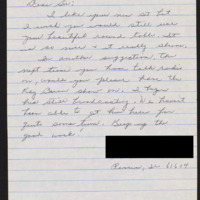 Dear Sir:
I like your new set but
I wish you would still use
your beautiful round table. It
is so nice & it really shows.
In another suggestion, the
next time you have talk radio
on, would you please have the
Key Larson show on. I hope
his still broadcasting. We haven't
been able to get him here for
quite some time. Keep up the
good work!